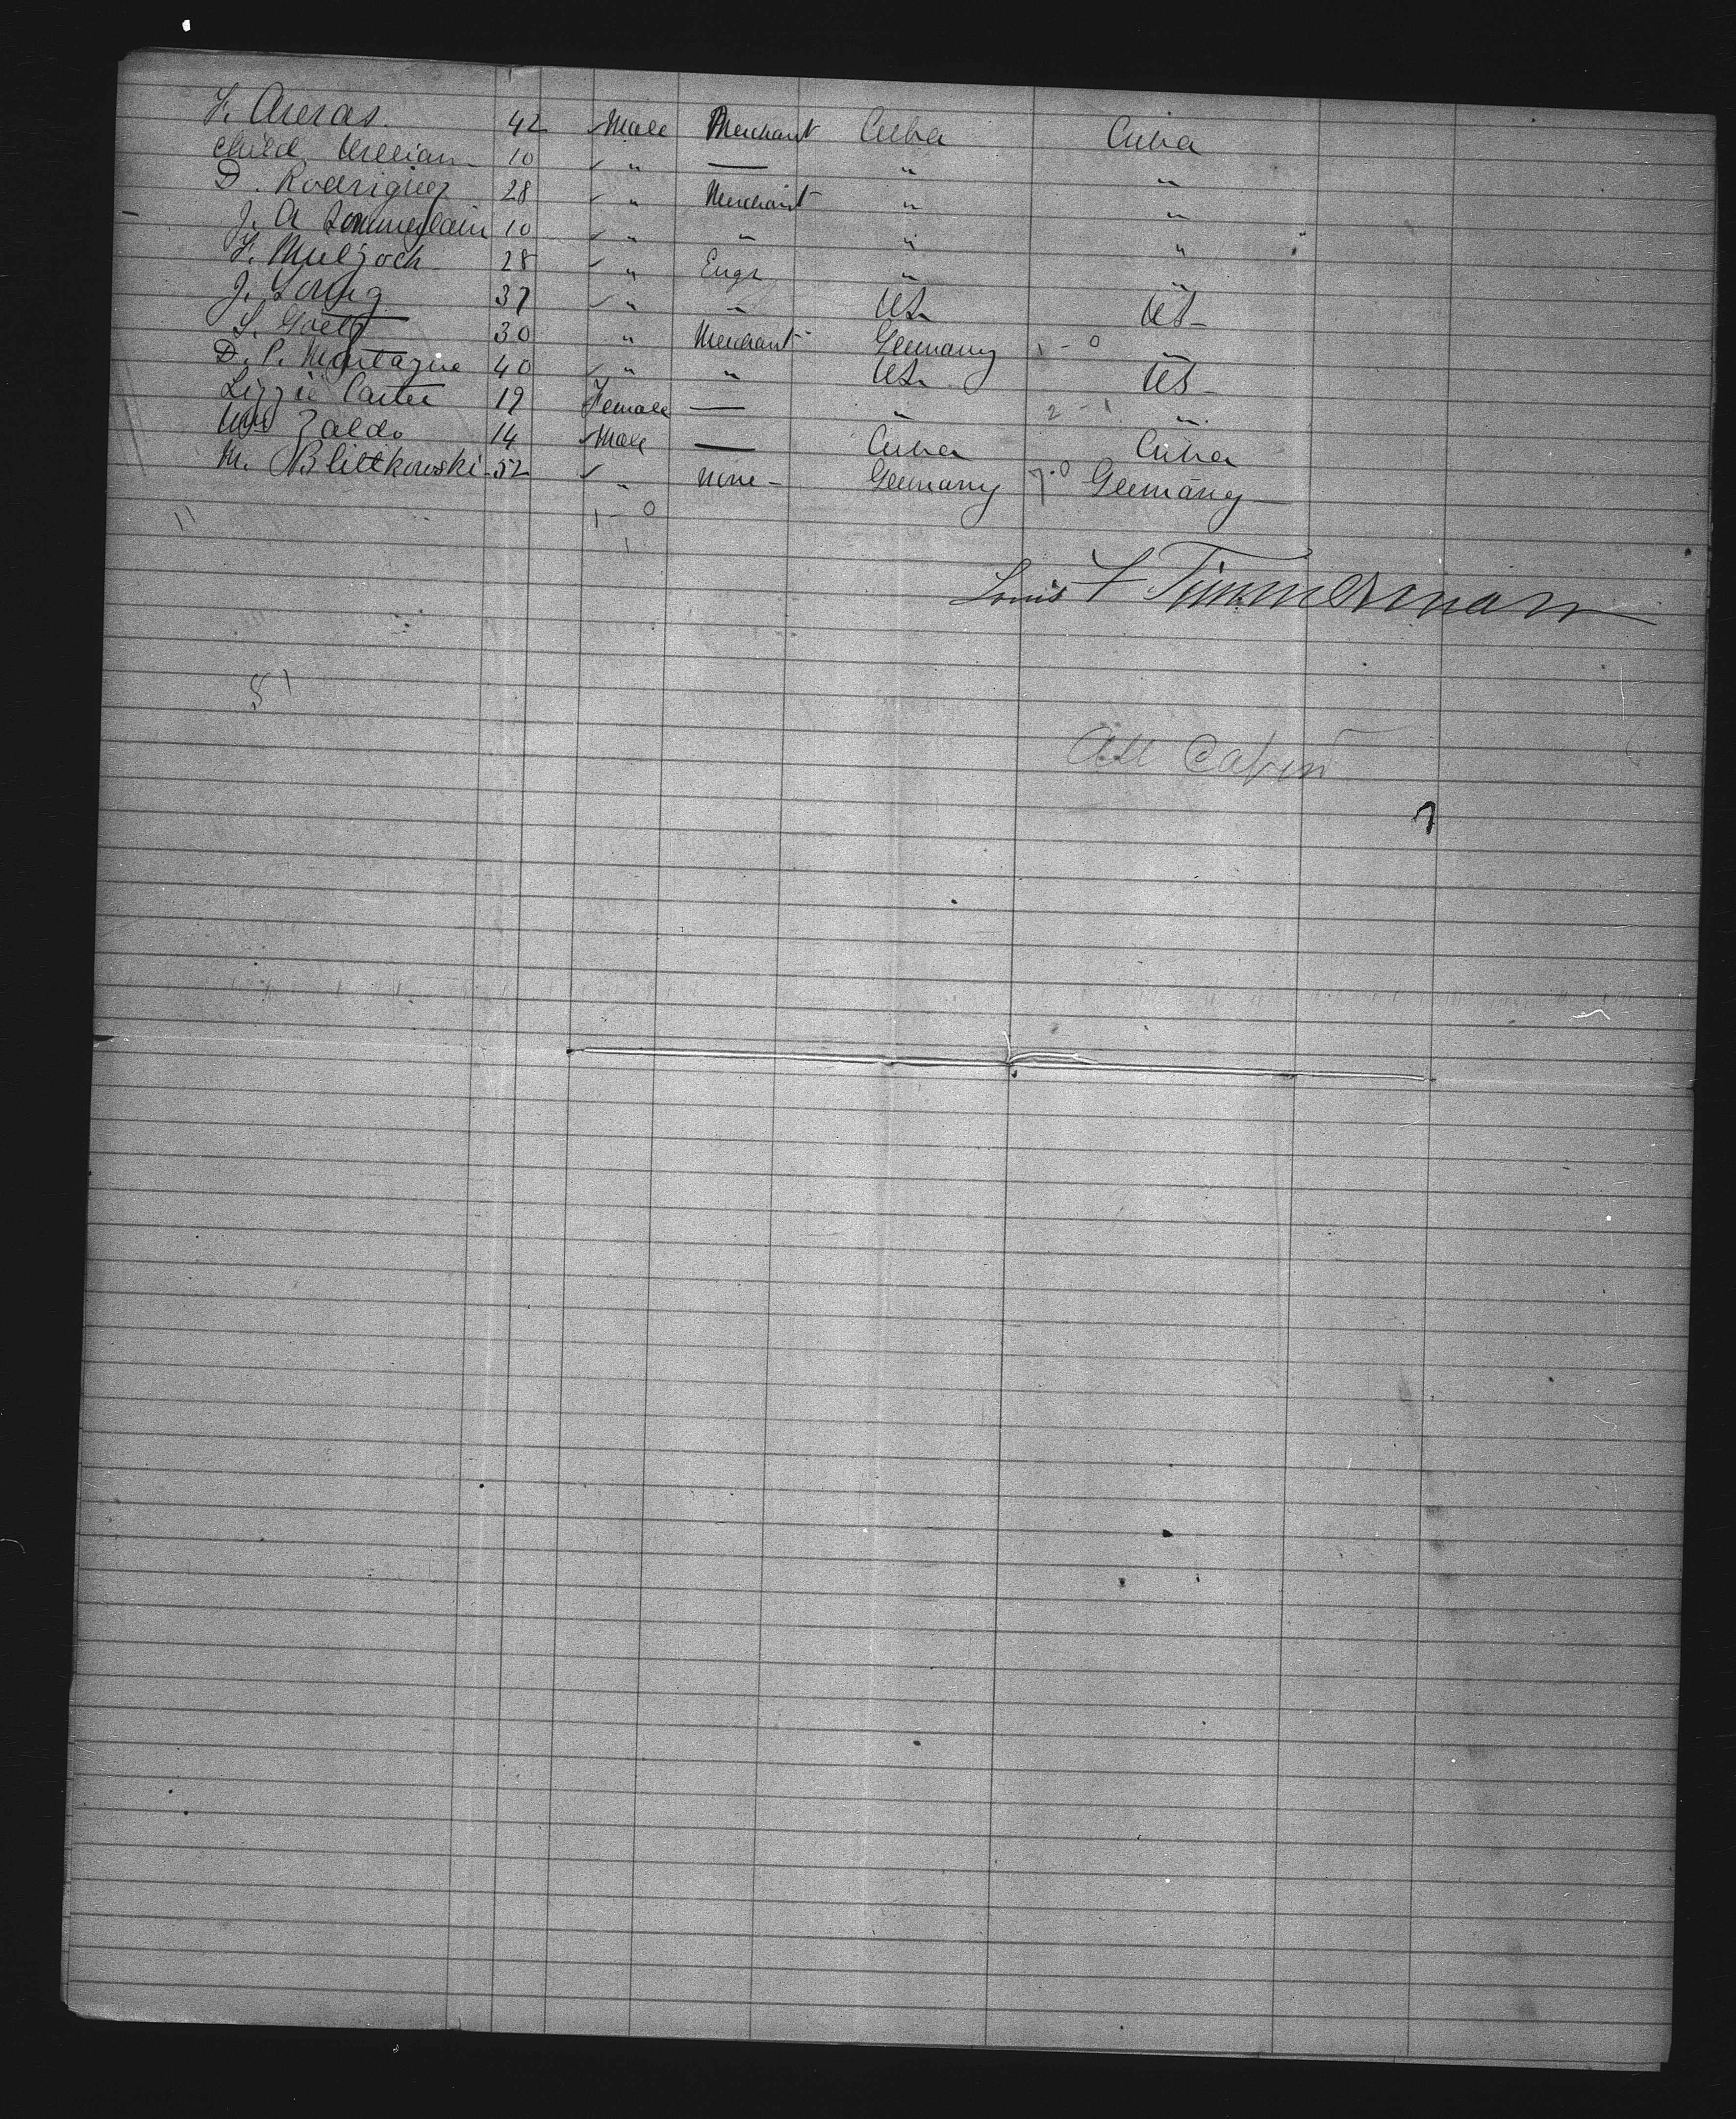 F. Arenas. 42 Male Merchant Cuba Cuba
Child William 10 " — " "
D. Rodriguez 28 " Merchant " "
J. A 10 " " " "
F. 28 " Engr " "
J. Young 37 " " US US
S. Goetz 30 " Merchant Germany 1 - 0 "
D. P. Montague 40 " " US US
Lizzie Carter 19 Female — " 2 - 1 "
Zaldo 14 Male — Cuba Cuba
M. Blittkowski 52 " None - Germany 7-0 Germany
11 1 - 0
1
Louis F Timmerman
51
All Cabin